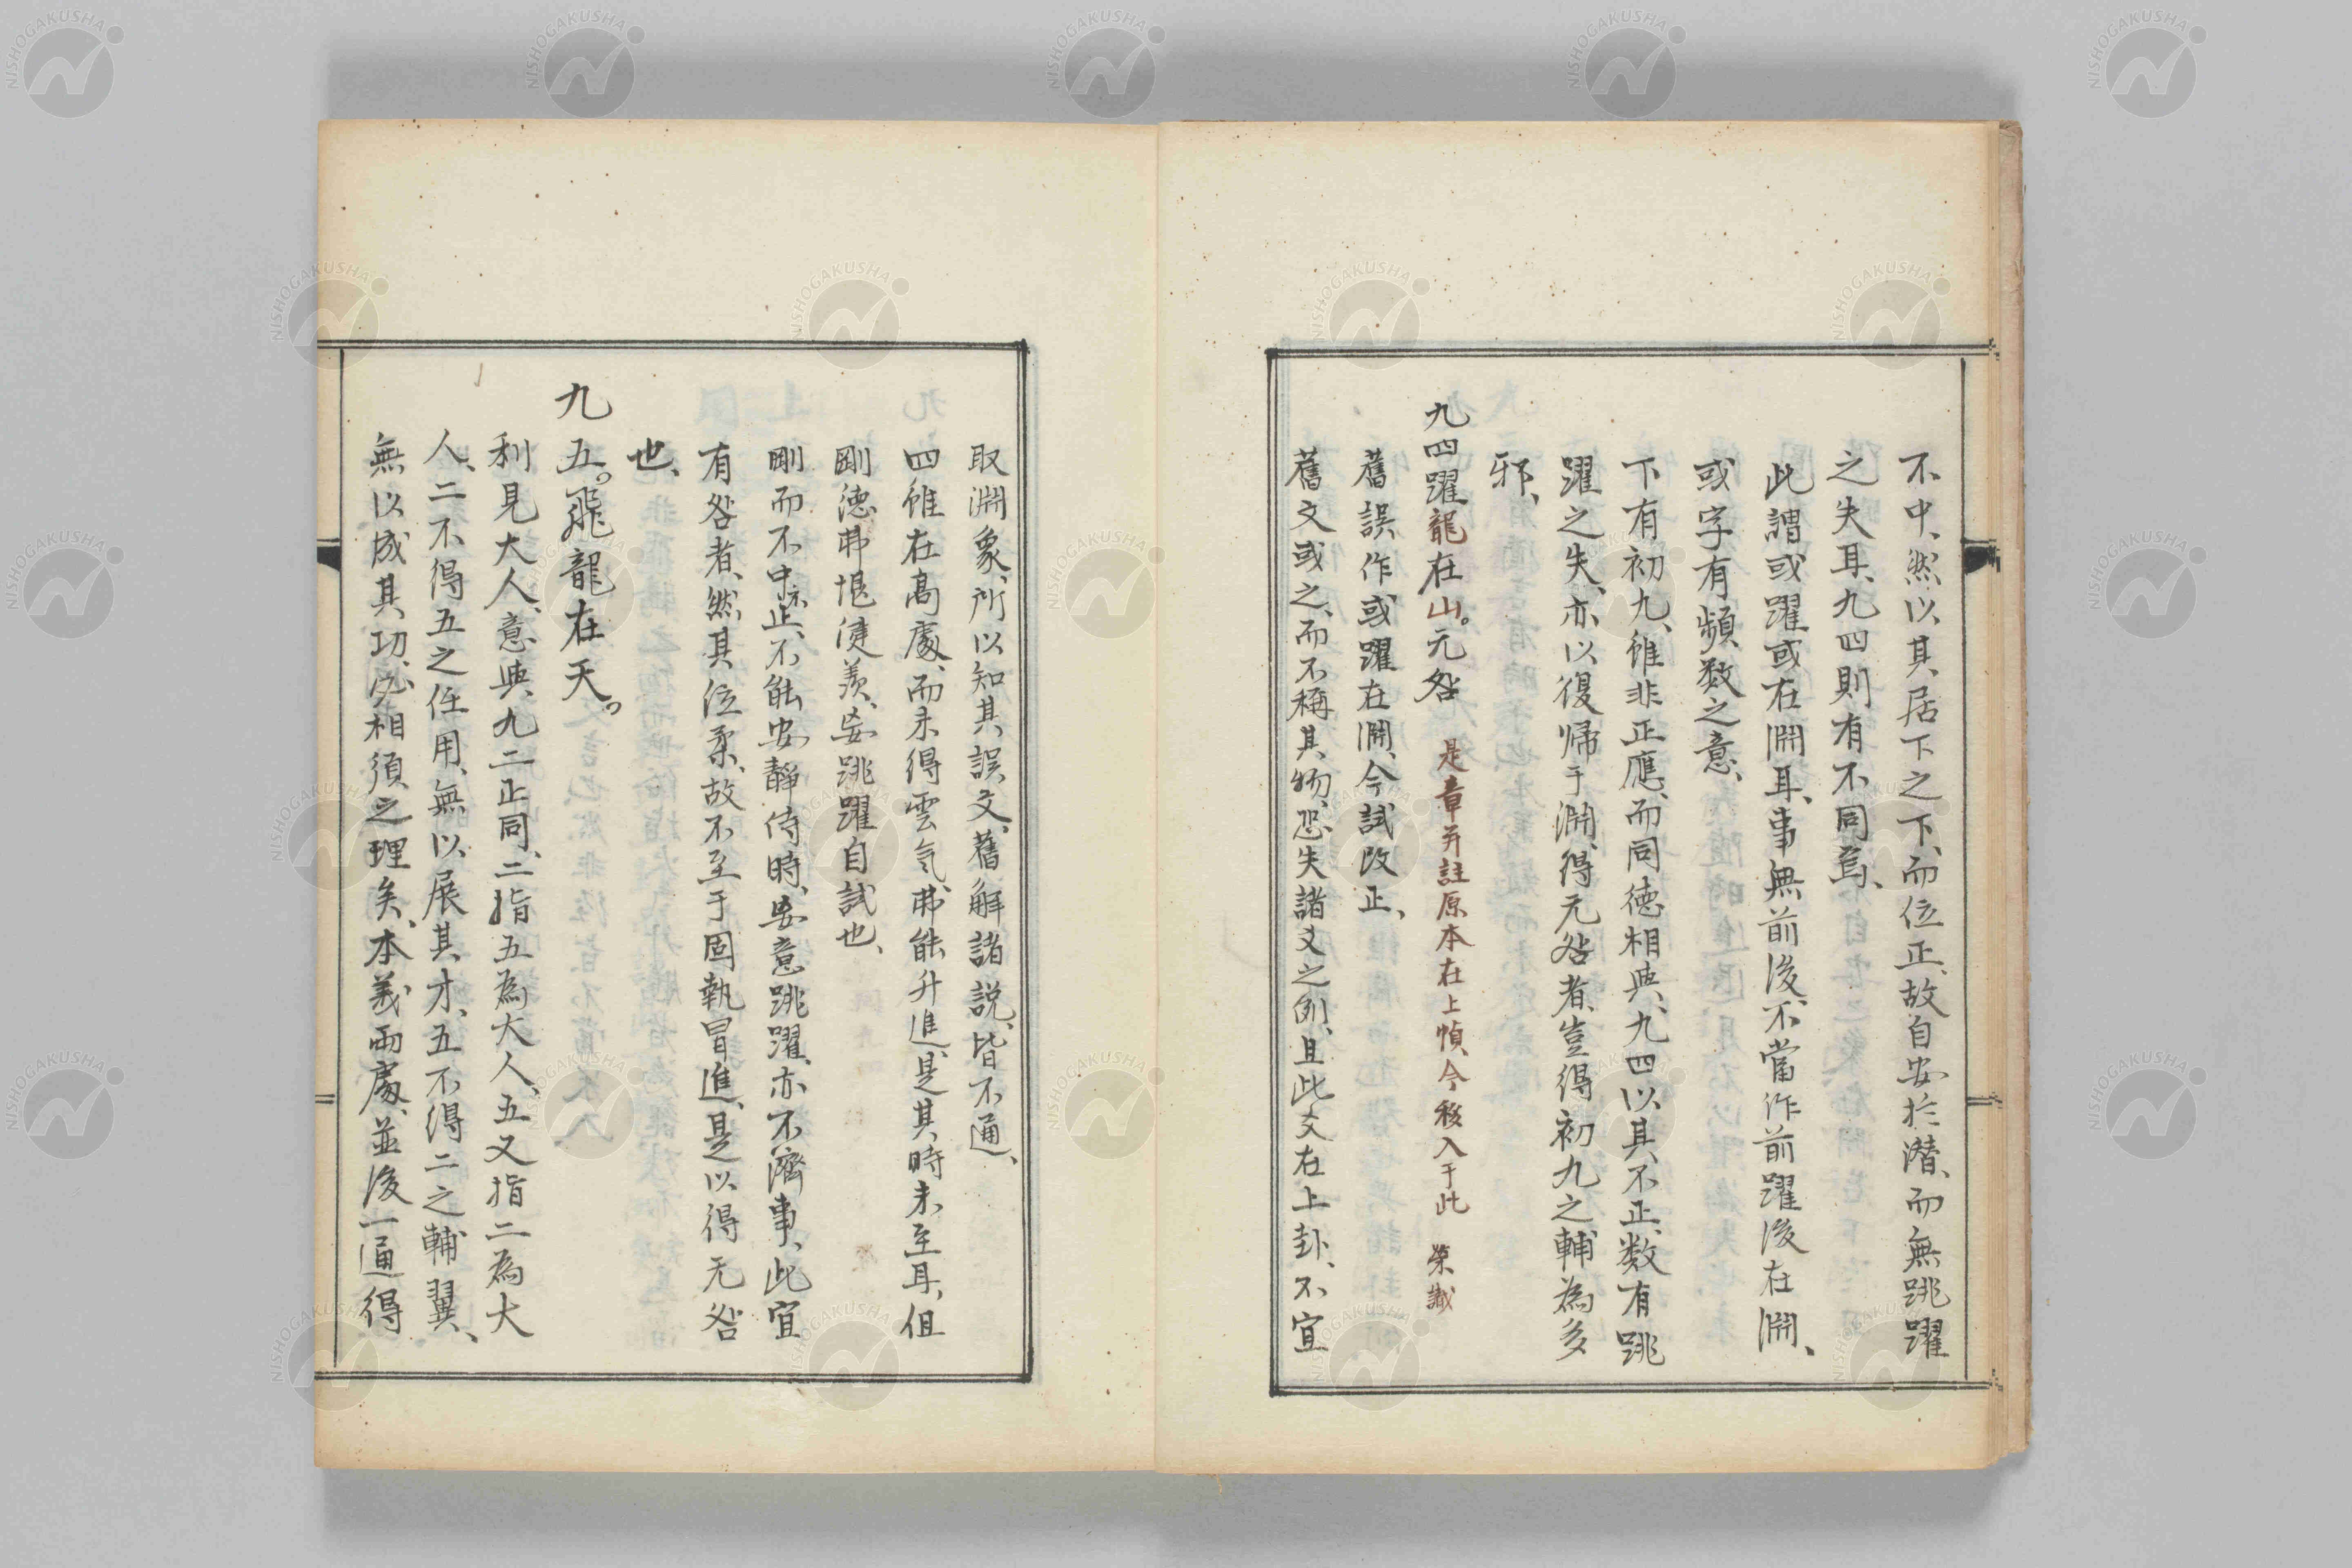 不中、然以其居下之下、而位正、故自安於潜、而無跳躍
之失耳、九四則有不同焉、
此謂或躍或在淵耳、事無前後、不當作前躍後在淵、
或字有頻数之意、
下有初九、雖非正應、而同徳相與、九四以其不正、数有跳
躍之失、亦以復帰于淵、得无咎者、豈得初九之輔為多
邪、
九四躍龍在山。无咎 是章并註原本在上幀、今移入于此 栄識
舊誤作或躍在淵、今試改正、
舊文或之、而不稱其物、恐失諸爻之例、且此爻在上卦、不宜
取淵象、所以知其誤文、舊解諸説、皆不通、
四雖在高處、而未得雲氣、弗能升進、是其時未至耳、但
剛徳弗恨健羨、妄跳躍自試也、
剛而不中不正、不能安靜侍時、妄意跳躍、亦不濟事、此宜
有咎者、然其位柔、故不至于固執冒進、是以得无咎
也、
九五。飛龍在天。
利見大人、意與九二正同、二指五為大人、五又指二為大
人、二不得五之任用、無以展其才、五不得二之輔翼、
無以成其功、必相須之理矣、本義兩處、並後一通得
NISHOGAKUSHA